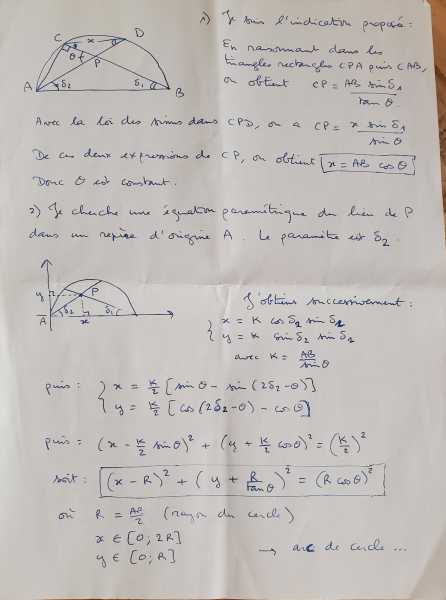 1) Je suis l'indication proposée :
En raisonnant dans les
triangles rectangles CPA puis CAB,
on obtient CP = AB sin δ₁ / tan θ.
C x D
θ P
A δ₂ δ₁ B
Avec la loi des sinus dans CPD, on a CP = x sin δ₁ / sin θ
De ces deux expressions de CP, on obtient x = AB cos θ
Donc θ est constant.
2) Je cherche une équation paramétrique du lieu de P
dans un repère d'origine A. Le paramètre est δ₂.
y P
A δ₂ x δ₁
J'obtiens successivement :
{ x = K cos δ₂ sin δ₁
y = K sin δ₂ sin δ₁
avec K = AB / sin θ
puis : { x = K/2 [sin θ - sin (2δ₂-θ)]
y = K/2 [cos (2δ₂-θ) - cos θ]
puis : (x - K/2 sin θ)² + (y + K/2 cos θ)² = (K/2)²
soit : (x - R)² + (y + R/tan θ)² = (R cos θ)²
où R = AB/2 (rayon du cercle)
x ∈ [0 ; 2R]
y ∈ [0 ; R] → arc de cercle ...